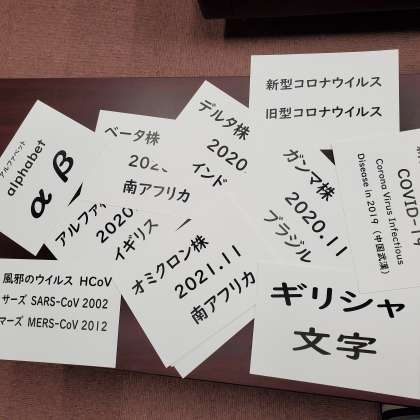 アルファベット
alphabet
α β
ベータ株
南アフリカ
デルタ株
2020
インド
新型コロナウイルス
旧型コロナウイルス
2020
イギリス
オミクロン株
2021.11
南アフリカ
ガンマ株
2020.11
ブラジル
Corona Virus Infectious
Disease in 2019 (中国武漢)
風邪のウイルス HCoV
サーズ SARS-CoV 2002
マーズ MERS-CoV 2012
ギリシャ
文字